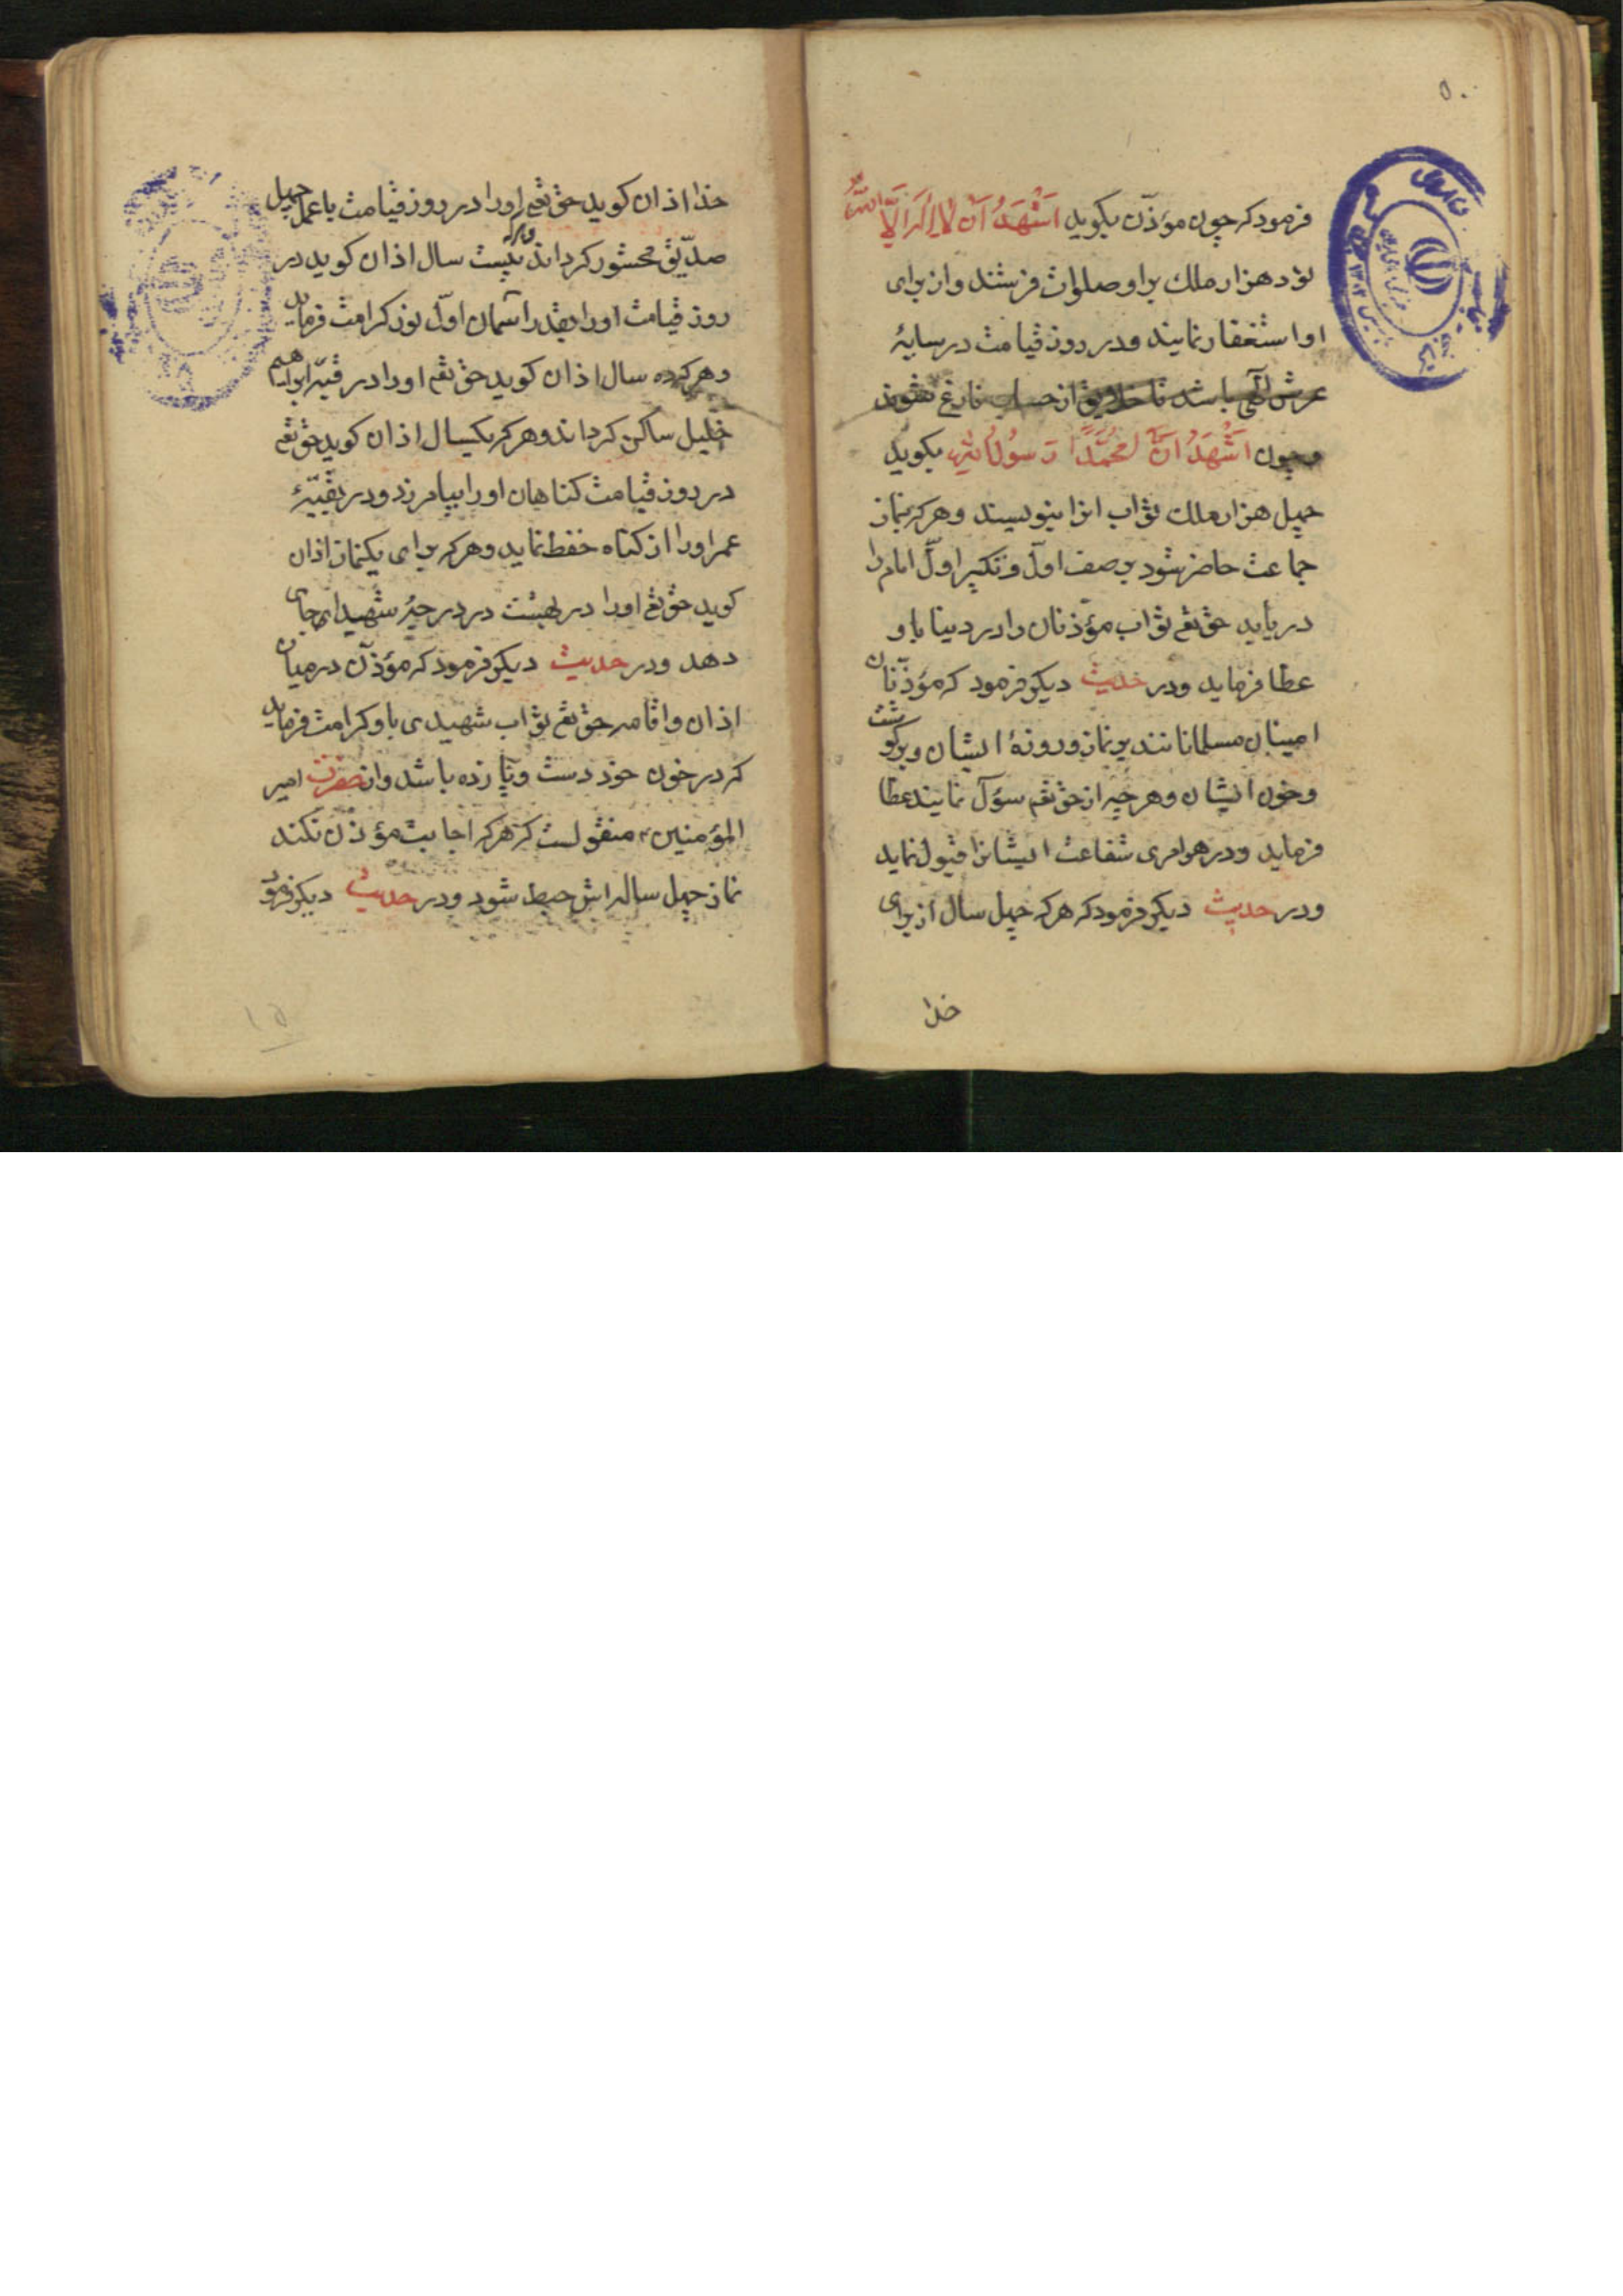 ۵۰
فرمود که چون مؤذّن بکوید اَشْهَدُ اَنْ لا اِلهَ اِلَّا اللّه
نود هزار ملک بر او صلوات فرستند و از برای
او استغفار نمایند و در روز قیامت در سایهٔ
عرش الهی باشد تا خلایق از حساب فارغ شوند
و چون اَشْهَدُ اَنَّ مُحَمَّدًا رَسُولُ اللهِ بکوید
چهل هزار ملک ثواب انرا بنویسند و هر که بنماز
جماعت حاضر شود بصف اوّل و تکبیر اوّل امام را
دریابد حق تعم ثواب مؤذنان را در دنیا باو
عطا فرماید و در حدیث دیکر فرمود که مؤذنان
امینان مسلمانانند بر نماز و روزهٔ ایشان و بر کوشت
و خون ایشان و هر چه از حق تعم سؤال نمایند عطا
فرماید و در هر امری شفاعت ایشانرا قبول نماید
و در حدیث دیکر فرمود که هر که چهل سال از برای
خدا
خدا اذان کوید حق تعم او را در روز قیامت با عمل چهل
صدّیق محشور کرداند و هر که بیست سال اذان کوید در
روز قیامت او را بقدر آسمان اوّل نور کرامت فرماید
و هر که ده سال اذان کوید حق تعم او را در قبّه ابراهیم
خلیل ساکن کرداند و هر که یکسال اذان کوید حق تعم
در روز قیامت کناهان او را بیامرزد و در بقیّهٔ
عمر او را از کناه حفظ نماید و هر که برای یکنماز اذان
کوید حق تعم او را در بهشت در درجهٔ شهیدان جای
دهد و در حدیث دیکر فرمود که مؤذّن در میان
اذان و اقامه حق تعم ثواب شهیدی باو کرامت فرماید
که در خون خود دست و پا زده باشد و از حضرت امیر
المؤمنین ع منقولست که هر که اجابت مؤذن نکند
نماز چهل ساله اش حبط شود و در حدیث دیکر فرمود
۵۱